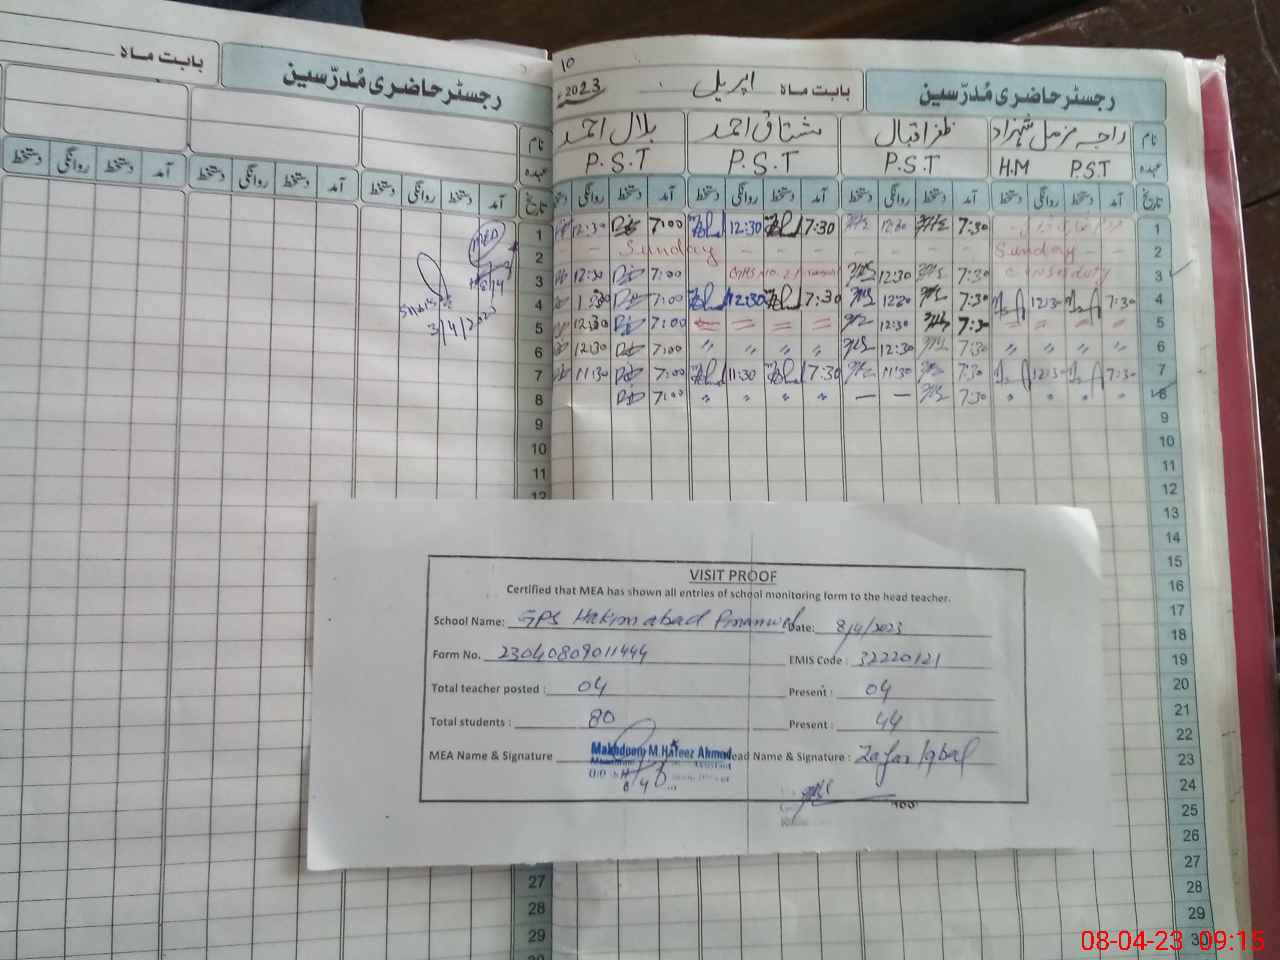 بابت ماہ
رجسٹر حاضری مُدرّسین
نام
عہدہ
دستخط روانگی دستخط آمد دستخط روانگی دستخط آمد دستخط روانگی دستخط آمد تاریخ
MEA
3/4/2023
10
2023 اپریل بابت ماہ رجسٹر حاضری مُدرّسین
نام راجہ مزمل شہزاد ظفر اقبال مشتاق احمد بلال احمد
عہدہ P.S.T H.M P.S.T P.S.T P.S.T
روانگی دستخط آمد دستخط روانگی دستخط آمد دستخط روانگی دستخط آمد دستخط روانگی دستخط آمد تاریخ
12:30 7:00 12:30 7:30 12:30 7:30 1
Sunday Sunday 2
12:30 7:00 12:30 7:30 3
7:00 12:30 7:30 7:30 12:30 7:30 4
12:30 7:00 = = = 12:30 7:30 = = = = 5
12:30 7:00 " " " " 12:30 7:30 " " " " 6
11:30 7:00 11:30 7:30 11:30 7:30 12:30 7:30 7
7:00 " " " " — — 7:30 " " " 8
9
10
11
12
13
14
15
16
17
18
19
20
21
22
23
24
25
26
27
28
29
30
VISIT PROOF
Certified that MEA has shown all entries of school monitoring form to the head teacher.
School Name: GPS Hakimabad Date: 8/4/2023
Form No. 23040809011444 EMIS Code : 32220121
Total teacher posted : 04 Present : 04
Total students : 80 Present : 44
MEA Name & Signature Makhdoom M.Hafeez Ahmad ead Name & Signature : Zafar Iqbal
08-04-23 09:15